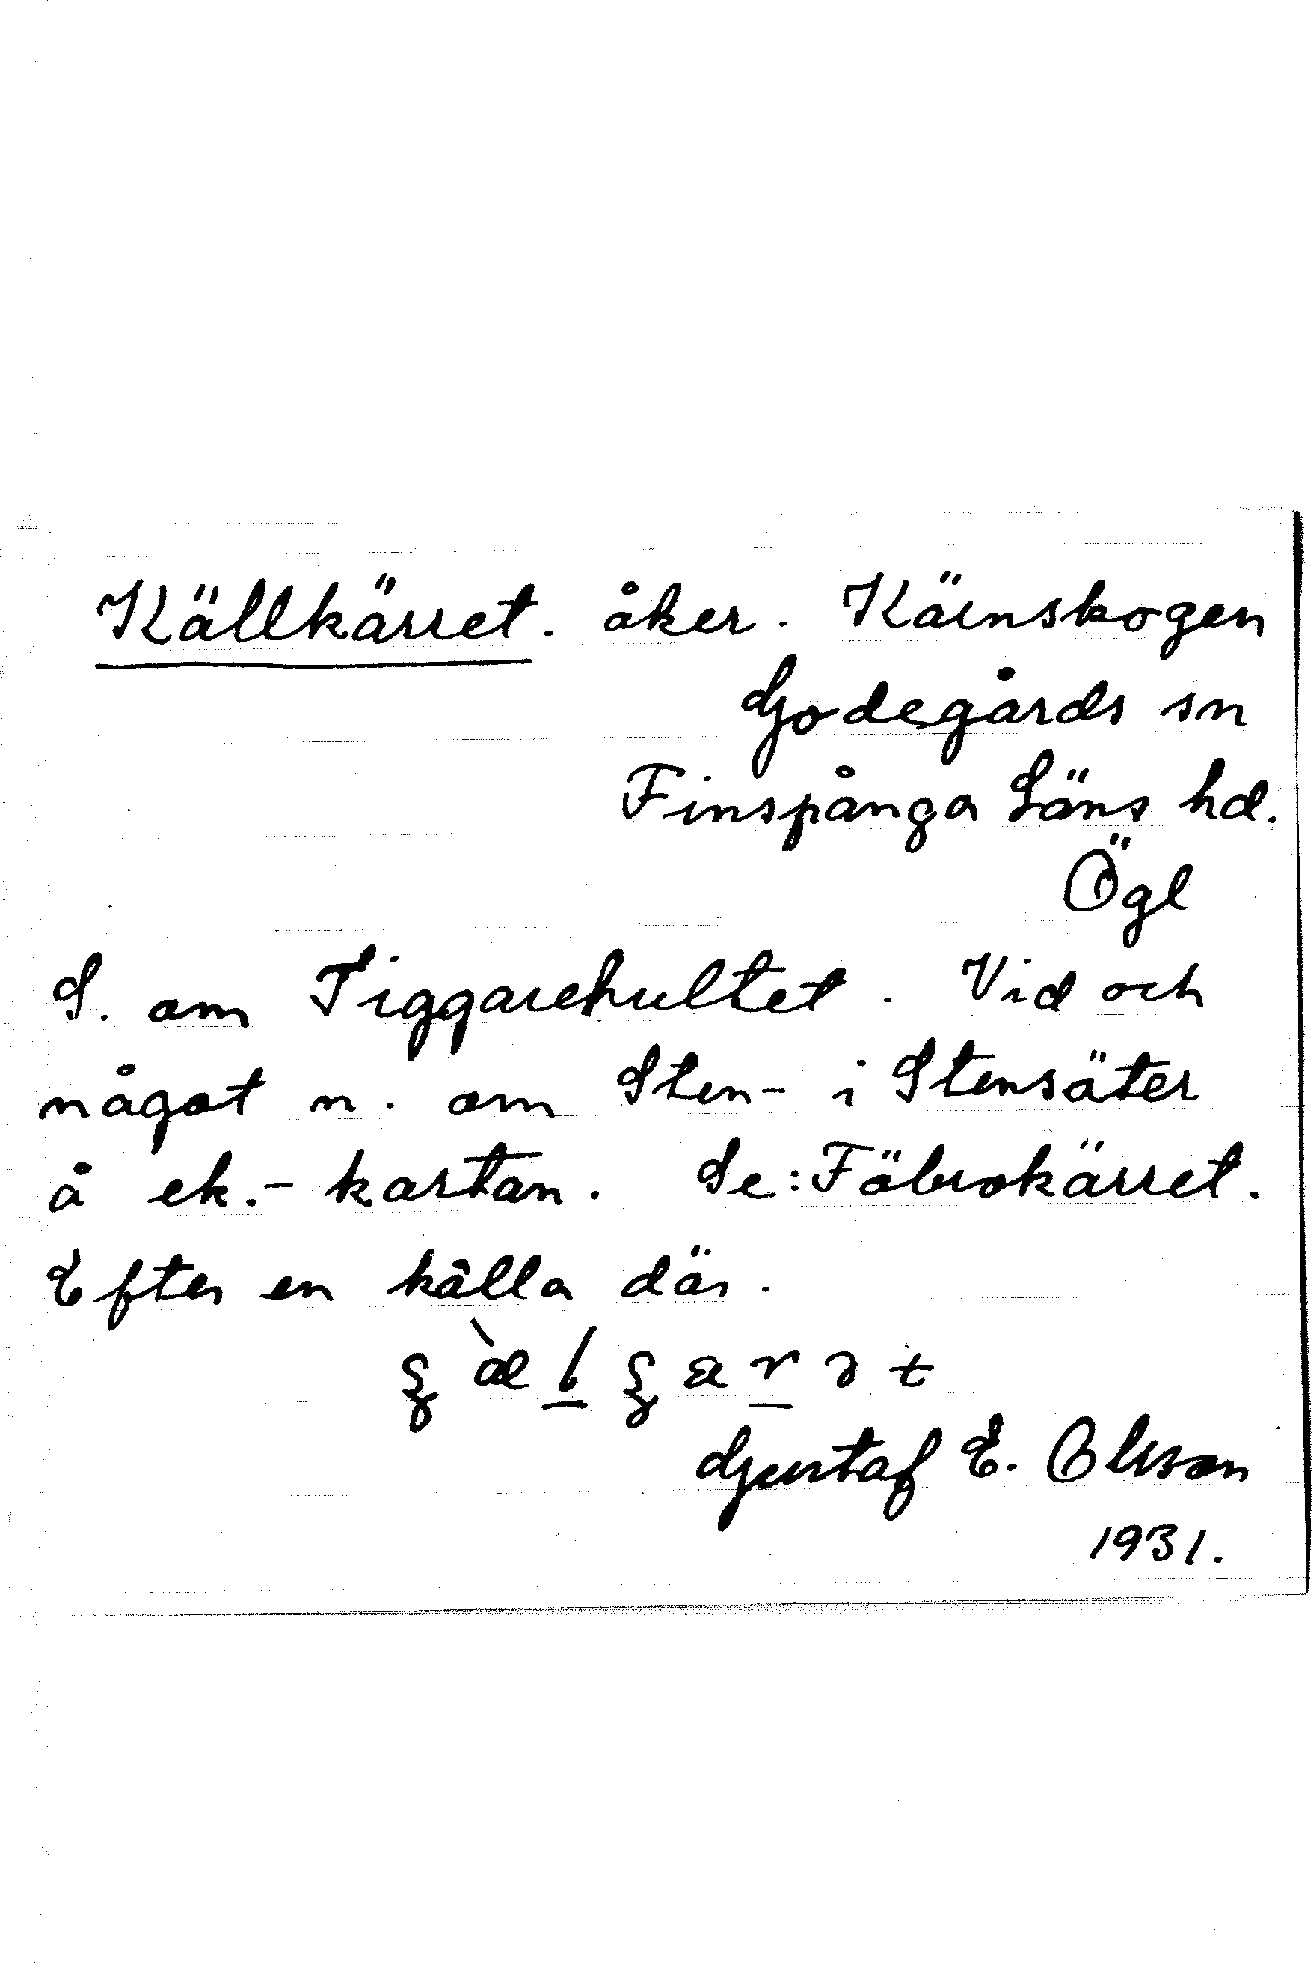 Källkärret. åker. Kärnskogen
Godegårds sn
Finspånga Läns hd.
Ögl
S. om Tiggarehultet. Vid och
något n. om Sten- i Stensäter
å ek.-kartan. Se: Föbrokärret.
Efter en källa där.
Gustaf E. Olsson
1931.